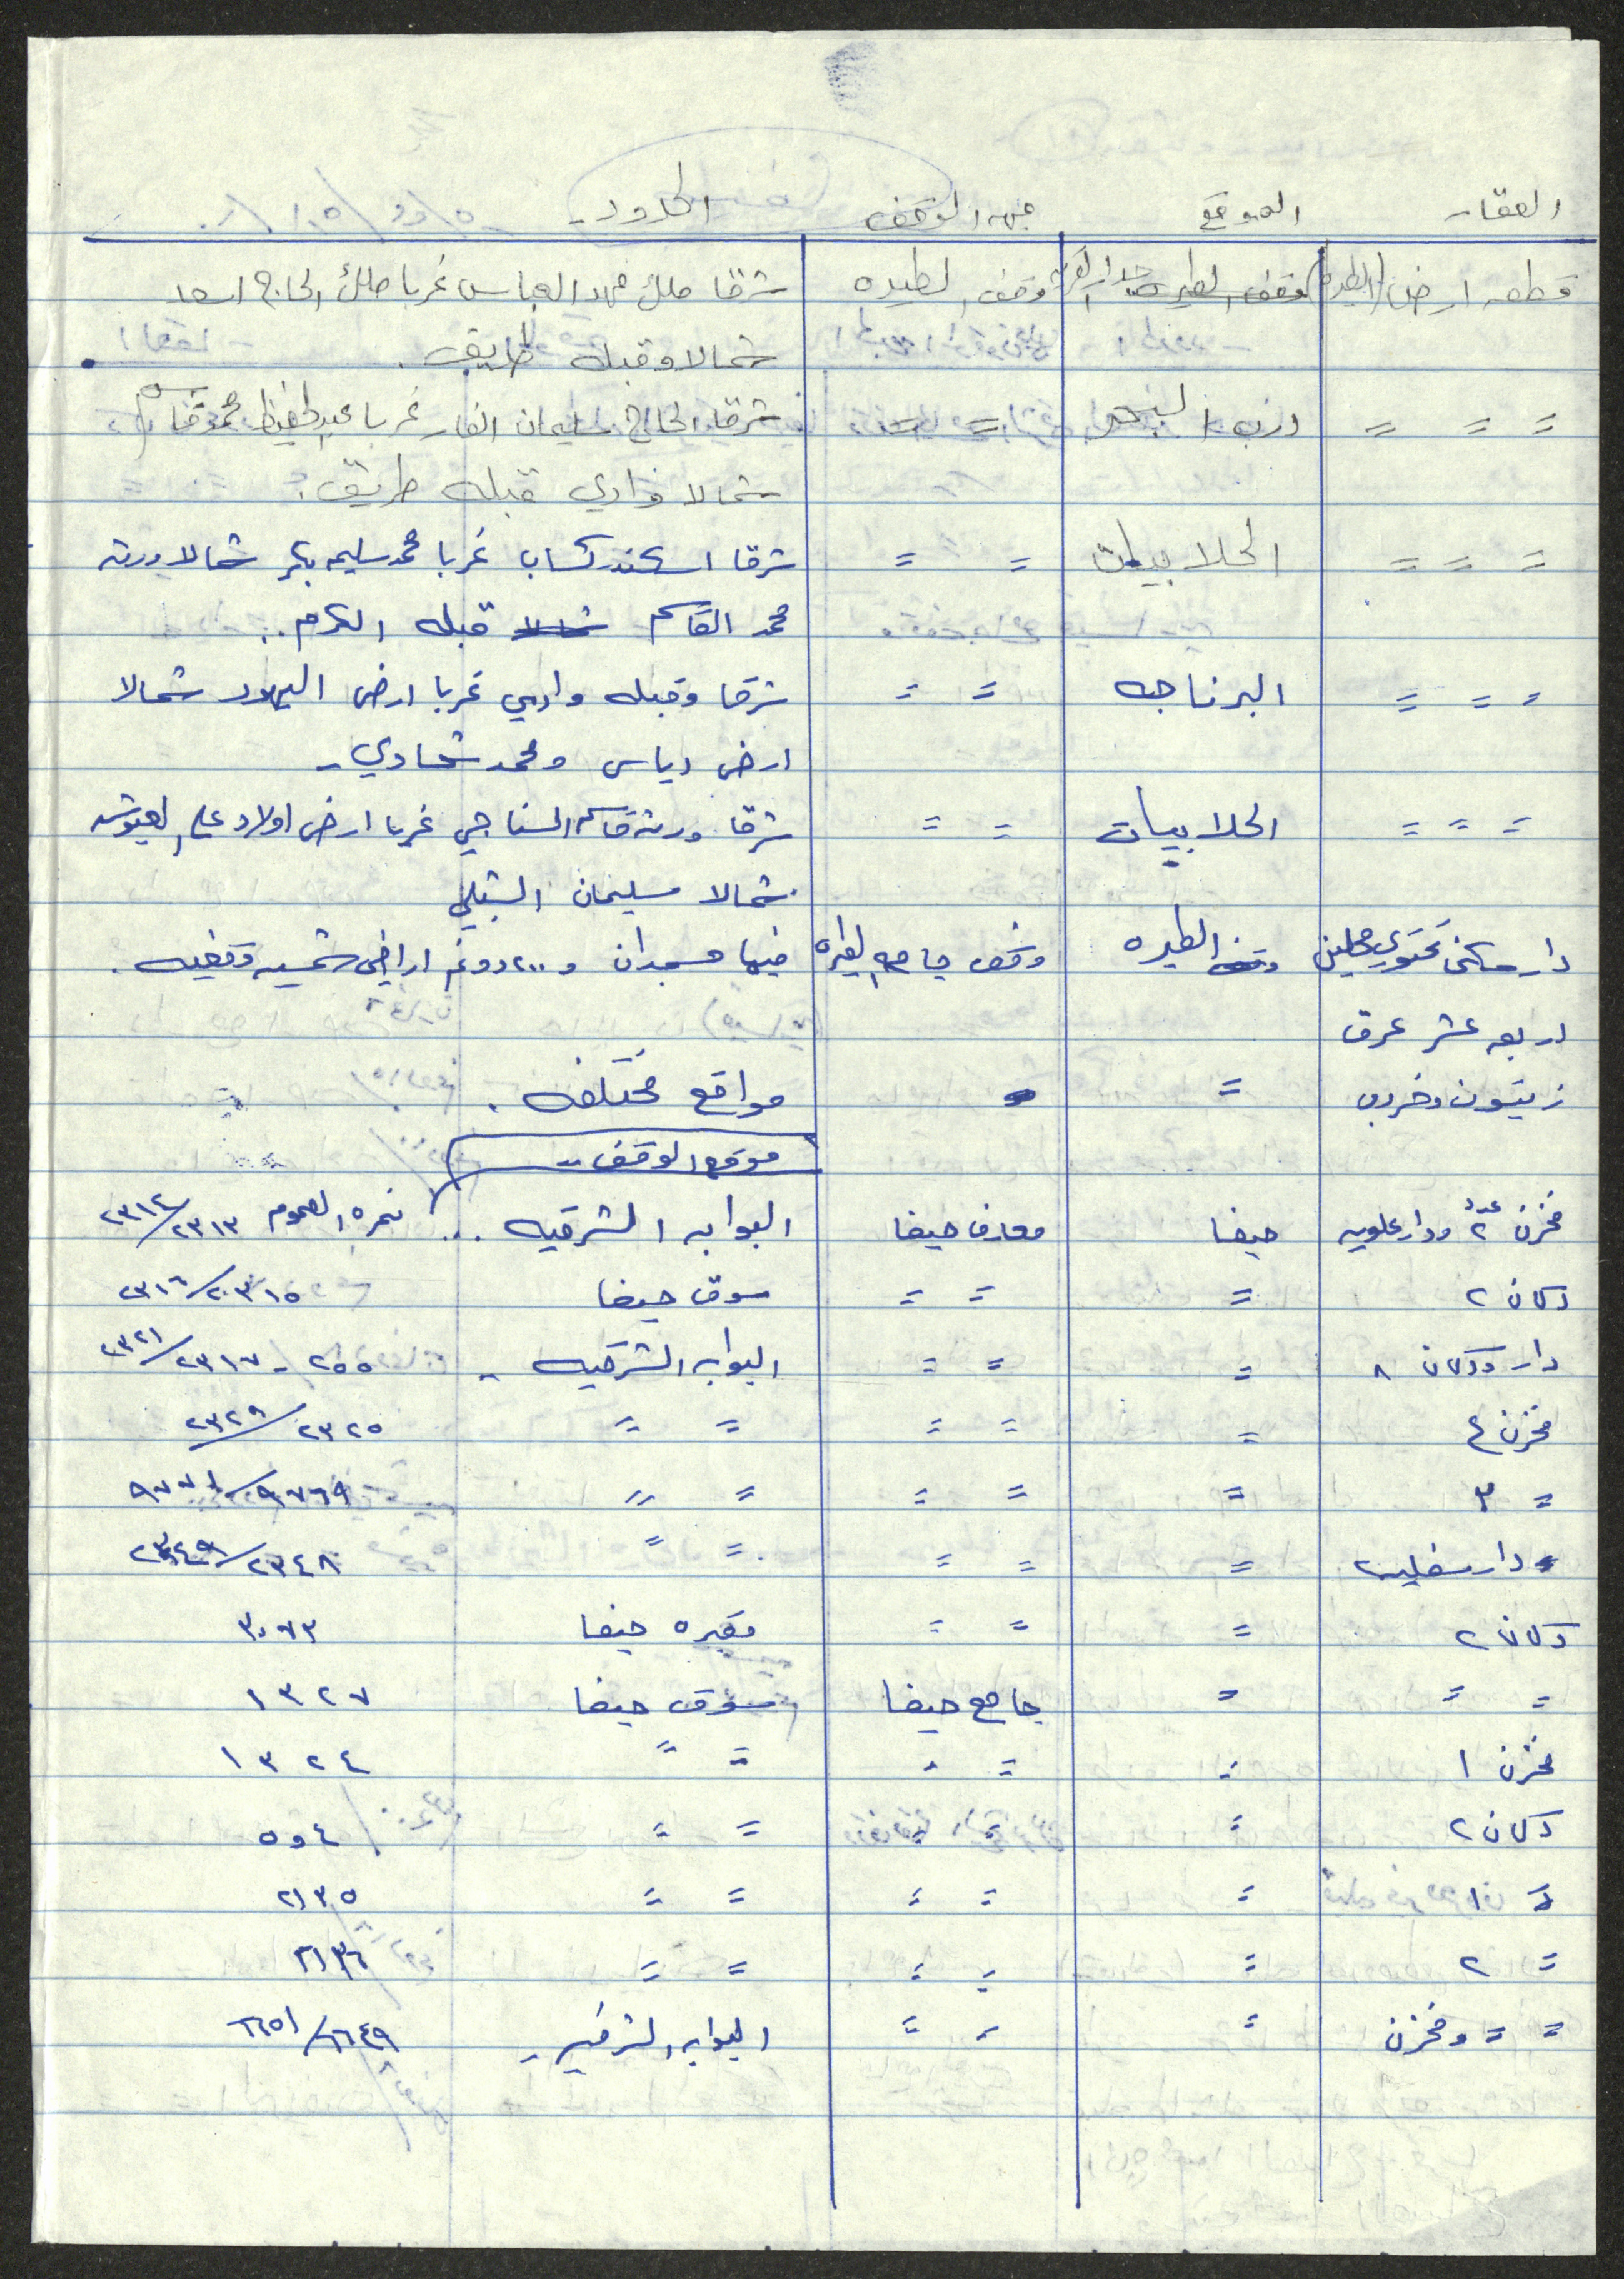 العقار الموقع جهه الوقف الحدود
قطعه ارض (الطيره) وقف الطيره شرقا ملك فهد العباس غربا ملك الحاج اسعد
شمالا وقبله طريق .
= = = درب البحر = = شرقا الحاج سليمان الفار غربا عبدالحفيظ محمد قاسم
شمالا وادي قبله طريق .
= = = الحلابيات = = شرقا اسكندر كساب غربا محمد سليم بكر شمالا ورثه
محمد القاسم قبله الكرم ..
= = = البرناجه = = شرقا وقبله وادي غربا ارض اليهود شمالا
ارض دياس ومحمد شحادي -
= = = الحلابيات = = شرقا ورثة قاسم السناجي غربا ارض اولاد علي
شمالا سليمان الشبلي
دار سكن تحتوي محلين الطيره وقف جامع الطيره فيها مسجدان و ٢٠٠ دونم اراضي شمسيه وقفيه .
اربعه عشر عرق
زيتون وخروب = مواقع مختلفه .
موقع الوقف -
مخزن عدد ٢ ودار علويه حيفا معارف حيفا البوابه الشرقيه ... نمره العموم ٢٣١٣/٢٣١٤
دكان ٢ = = = سوق حيفا ٢٣١٥/٢٣١٦
دار ودكان ٨ = = = البوابه الشرقيه - ٢٥٥ - ٢٣١٧/٢٣٢١
مخزن ٤ = = = = = ٢٣٢٥/٢٣٢٩
= ٣ = = = = = ٩٧٦٩/٩٧٧١
دار سفليه = = = = = ٢٣٤٨/٢٣٤٩
دكان ٢ = = = مقبره حيفا ٣٠٧٣
= = = جامع حيفا سوق حيفا ١٣٢٧
مخزن ١ = = = = = ١٣٢٤
دكان ٢ = = = = = ٤ و ٥
= ١ = = = = = ٢١٣٥
= ٢ = = = = = ٢١٣٦
= = ومخزن = = = البوابه الشرقيه - ٦٦٤٩/٦٦٥١